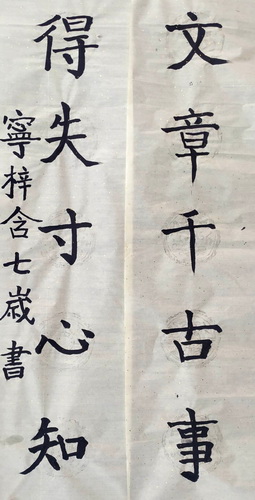 文章千古事
得失寸心知
寧梓含七歲書